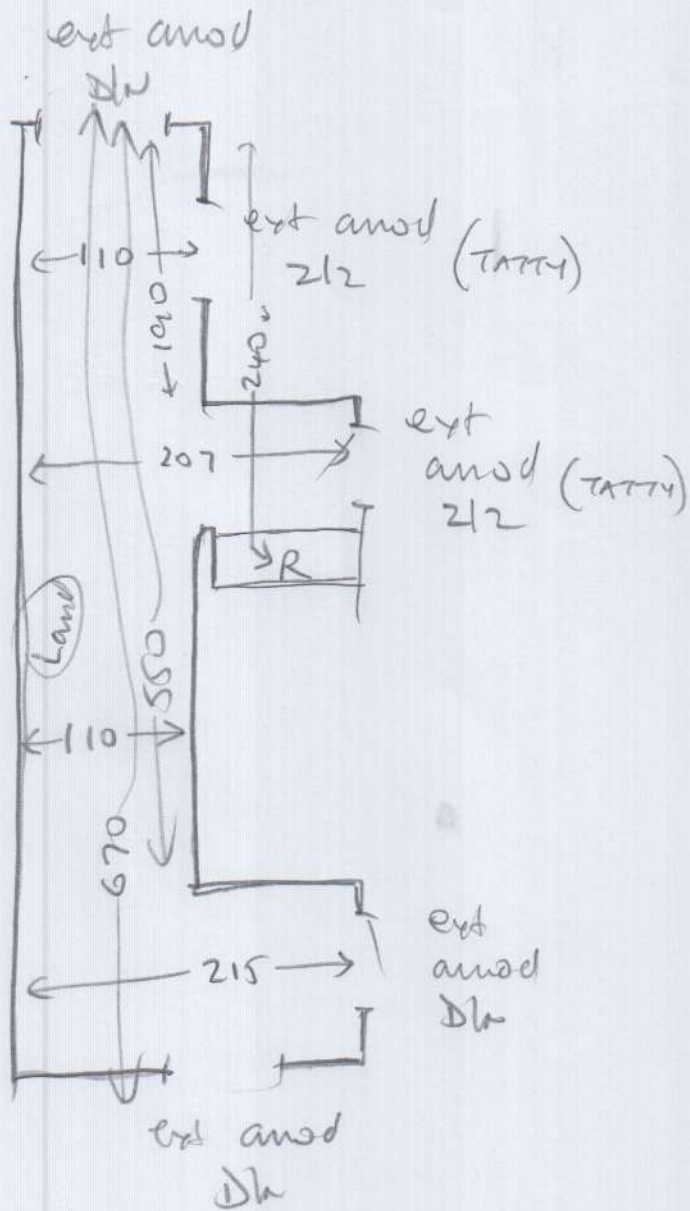 ext anod
D/N
110
ext anod
2/2 (TATTY)
190
240
207
ext
anod
2/2 (TATTY)
R
Land
550
110
670
215
ext
anod
D/N
ext anod
D/N